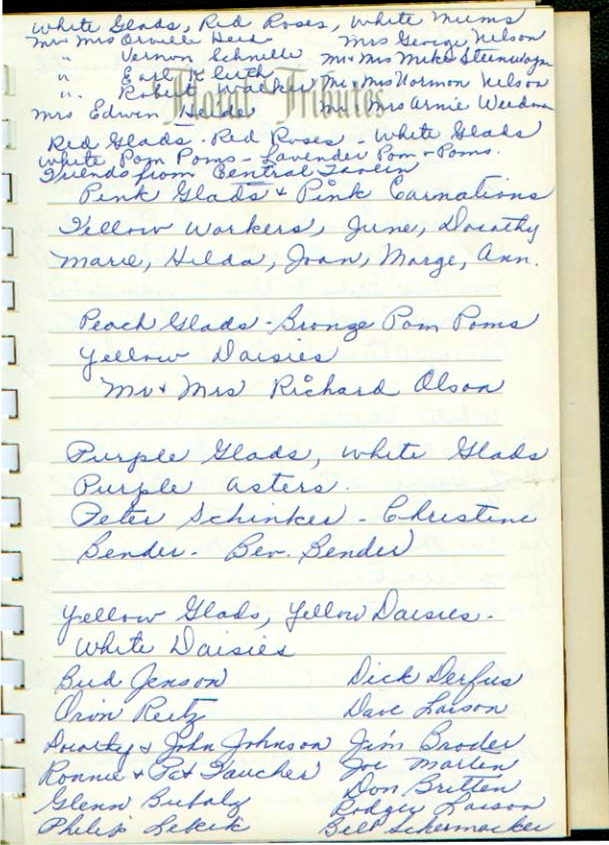 White Glads, Red Roses, White Mums
Mr Mrs Orville Heid Mrs George Nelson
" Vernon Schnelle Mr + Mrs Mike Steinwagn
" Earl Kluth Mr + Mrs Norman Nelson
" Robert Walker Mr Mrs Arnie Weedman
Floral Tributes
Mrs Edwin Heide
Red Glads - Red Roses - White Glads
White Pom Poms - Lavender Pom - Poms.
Friends from Central Tavern
Pink Glads + Pink Carnations
Fellow Workers, June, Dorothy
Marie, Hilda, Joan, Marge, Ann.
Peach Glads - Bronze Pom Poms
Yellow Daisies
Mr + Mrs Richard Olson
Purple Glads, White Glads
Purple asters.
Peter Schinker - Christine
Bender - Bev. Bender
Yellow Glads, Yellow Daisies.
White Daisies
Bud Jenson Dick Derfus
Orvin Reitz Dave Larson
Dorothy + John Johnson Jim Broder
Ronnie + Pat Faucher Joe Martin
Glenn Bubolz Don Britten
Philip Lekik Rodger Larson
Bill Schermacker